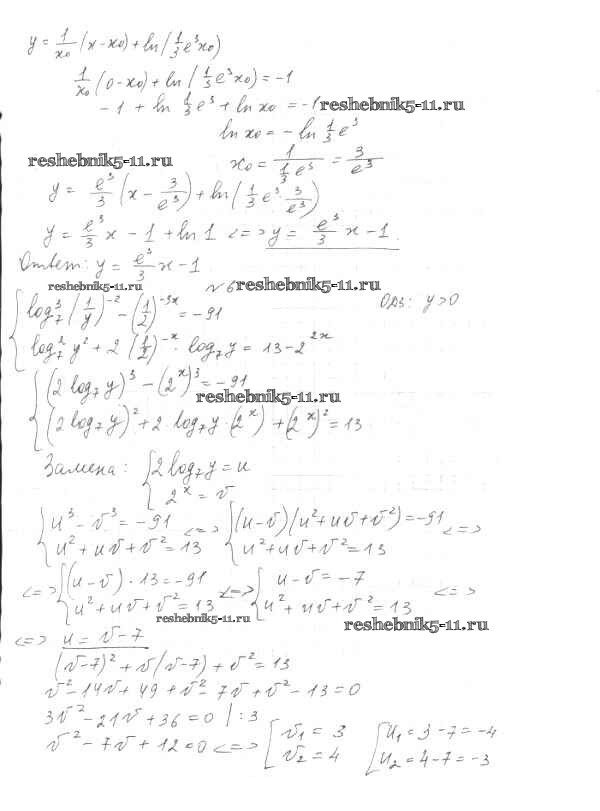 y = 1/x₀ (x - x₀) + ln(1/3 e³x₀)
1/x₀ (0 - x₀) + ln(1/3 e³x₀) = -1
-1 + ln 1/3 e³ + ln x₀ = -1 reshebnik5-11.ru
ln x₀ = -ln 1/3 e³
reshebnik5-11.ru x₀ = 1/(1/3 e³) = 3/e³
y = e³/3 (x - 3/e³) + ln(1/3 e³ · 3/e³)
y = e³/3 x - 1 + ln 1 <=> y = e³/3 x - 1.
Ответ: y = e³/3 x - 1
reshebnik5-11.ru №6 reshebnik5-11.ru
{ log₇³ (1/y)⁻² - (1/2)⁻³ˣ = -91 ОДЗ: y > 0
log₇² y² + 2 (1/2)⁻ˣ · log₇ y = 13 - 2²ˣ
{ (2 log₇ y)³ - (2ˣ)³ = -91
reshebnik5-11.ru
(2 log₇ y)² + 2 · log₇ y · (2ˣ) + (2ˣ)² = 13
Замена: { 2 log₇ y = u
2ˣ = v
{ u³ - v³ = -91 <=> { (u - v)(u² + uv + v²) = -91 <=>
u² + uv + v² = 13 u² + uv + v² = 13
<=> { (u - v) · 13 = -91 <=> { u - v = -7 <=>
u² + uv + v² = 13 u² + uv + v² = 13
reshebnik5-11.ru reshebnik5-11.ru
<=> u = v - 7
(v - 7)² + v(v - 7) + v² = 13
v² - 14v + 49 + v² - 7v + v² - 13 = 0
3v² - 21v + 36 = 0 | : 3
v² - 7v + 12 = 0 <=> [ v₁ = 3 [ u₁ = 3 - 7 = -4
v₂ = 4 u₂ = 4 - 7 = -3